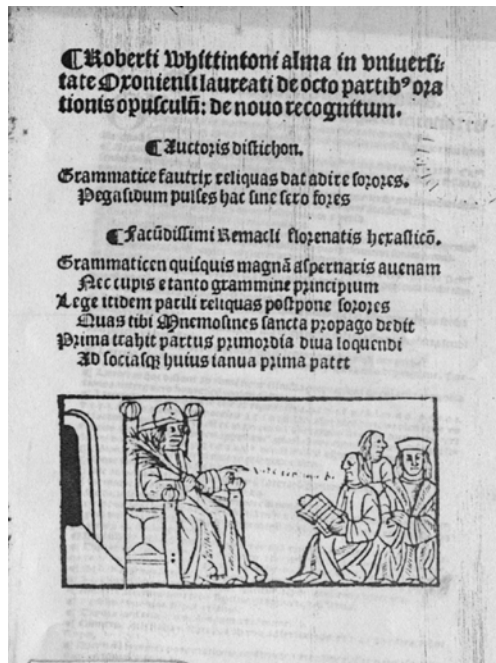 ¶Roberti Whittintoni alma in vniuersi-
tate Oxoniensi laureati de octo partibꝰ ora
tionis opusculū: de nouo recognitum.
¶Auctoris distichon.
Grammatice fautrix reliquas dat adire sorores.
Pegasidum pulses hac sine sero fores
¶Facūdissimi Remacli florenatis hexasticō.
Grammaticen quisquis magnā aspernaris auenam
Nec cupis e tanto grammine principium
Lege itidem parili reliquas postpone sorores
Quas tibi Mnemosines sancta propago dedit
Prima trahit partus primordia diua loquendi
Ad sociasqꝫ huius ianua prima patet